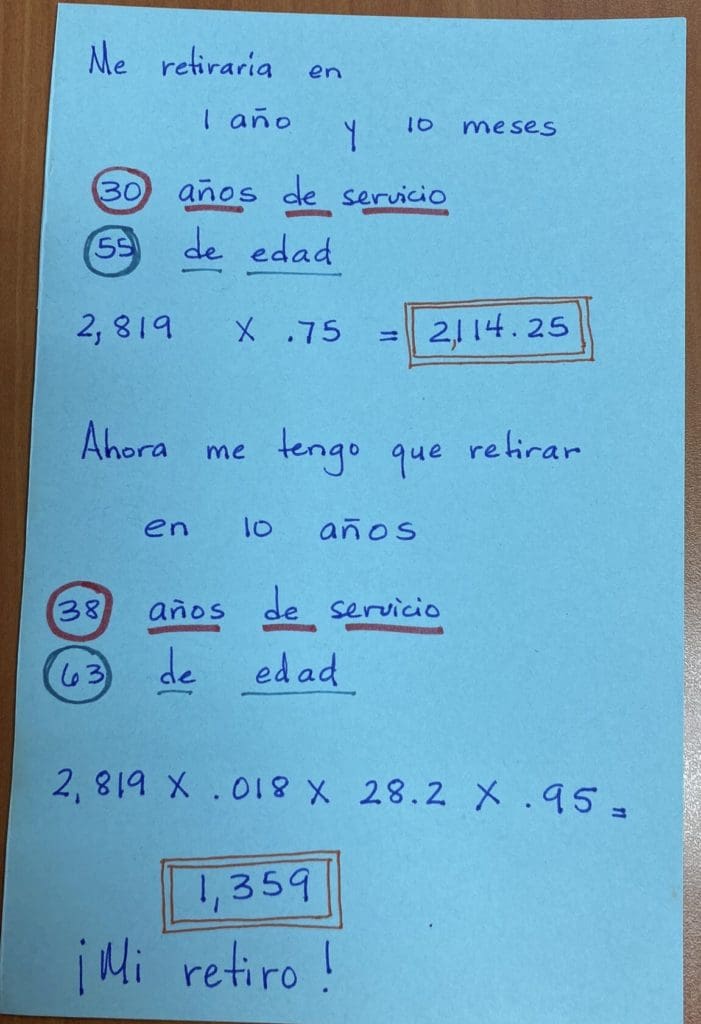 Me retiraría en
1 año y 10 meses
30 años de servicio
55 de edad
2,819 x .75 = 2,114.25
Ahora me tengo que retirar
en 10 años
38 años de servicio
63 de edad
2,819 x .018 x 28.2 x .95 =
1,359
¡Mi retiro!